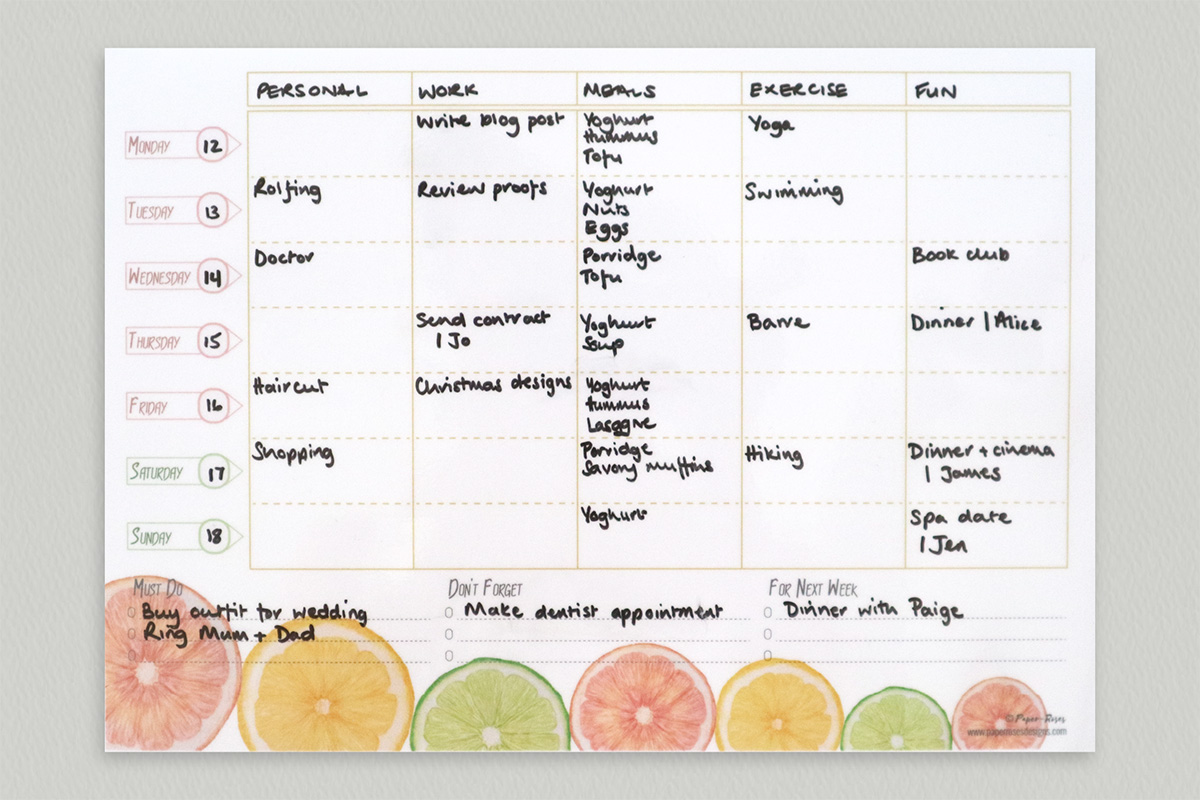 PERSONAL WORK MEALS EXERCISE FUN
MONDAY 12
Write blog post
Yoghurt
Hummus
Tofu
Yoga
TUESDAY 13
Rolfing
Review proofs
Yoghurt
Nuts
Eggs
Swimming
WEDNESDAY 14
Doctor
Porridge
Tofu
Book club
THURSDAY 15
Send contract
| Jo
Yoghurt
Soup
Barre
Dinner | Alice
FRIDAY 16
Haircut
Christmas designs
Yoghurt
Hummus
Lasagne
SATURDAY 17
Shopping
Porridge
Savory muffins
Hiking
Dinner + cinema
| James
SUNDAY 18
Yoghurt
Spa date
| Jen
MUST DO
Buy outfit for wedding
Ring Mum + Dad
DON'T FORGET
Make dentist appointment
FOR NEXT WEEK
Dinner with Paige
© Paper-Roses
www.paperrosesdesigns.com